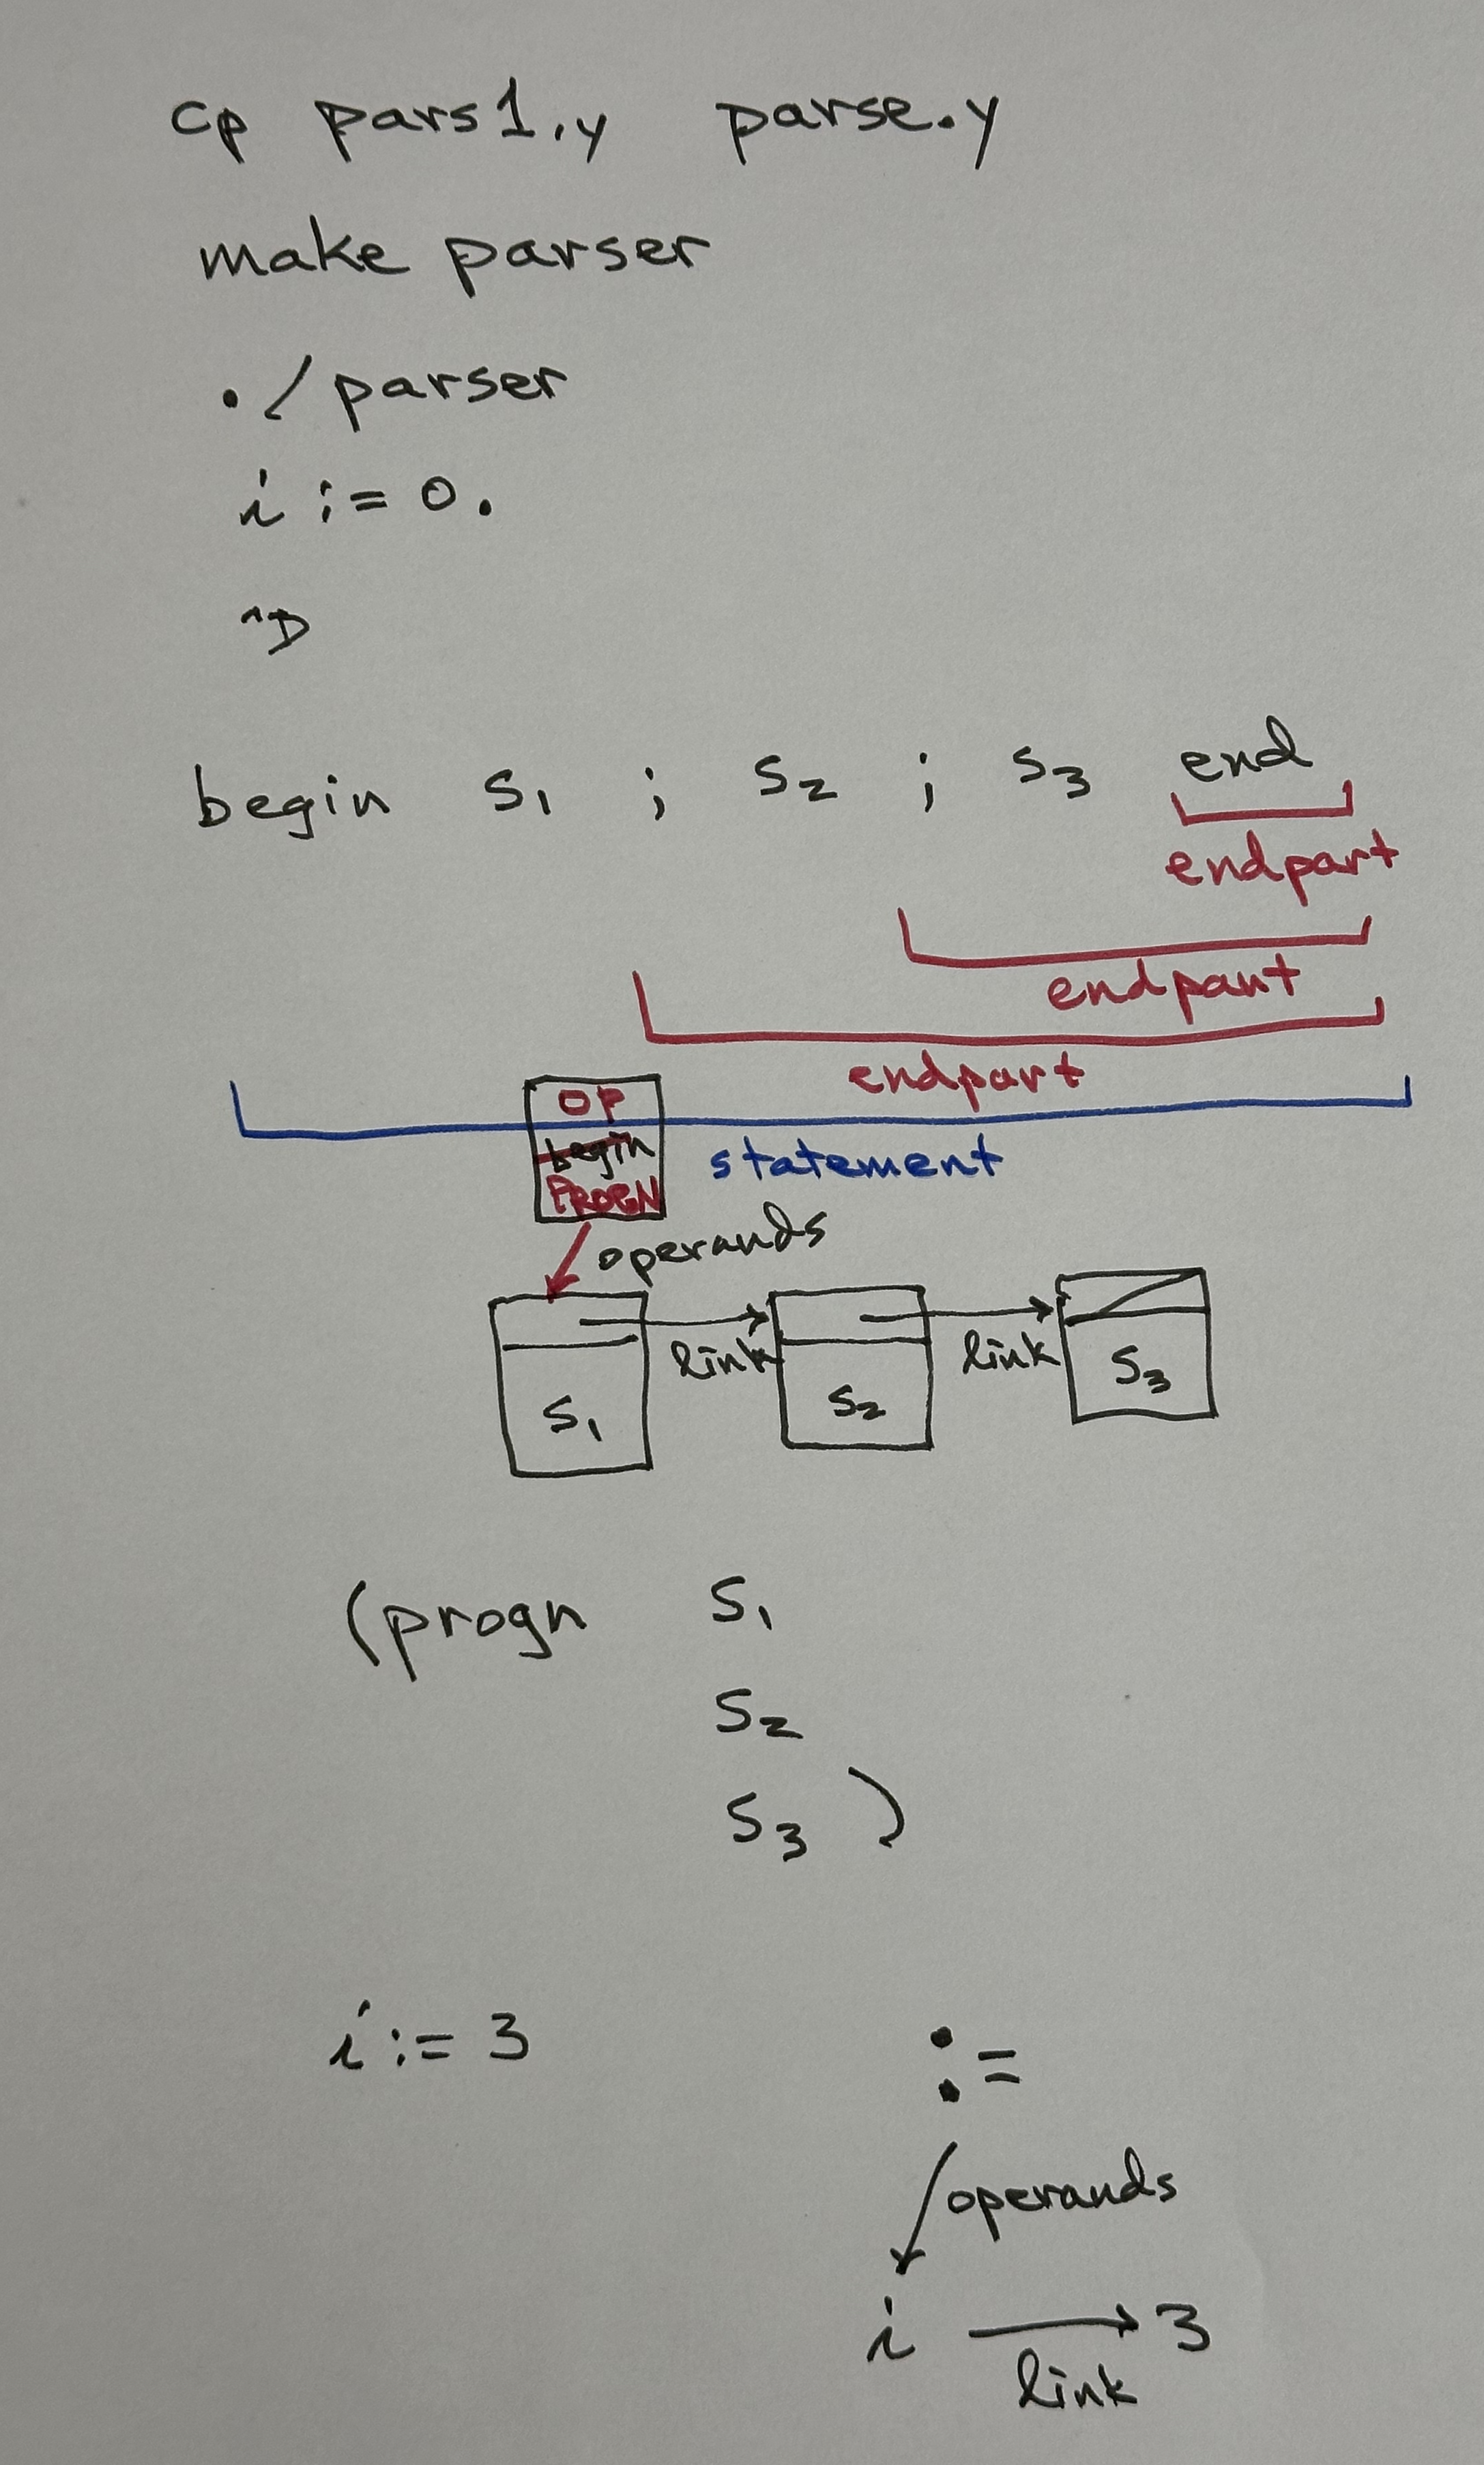 cp pars1.y parse.y
make parser
./parser
i := 0.
^D
begin S1 ; S2 ; S3 end
endpart
endpart
endpart
OP
begin
PROGN
statement
operands
link
link
S1
S2
S3
(progn S1
S2
S3 )
i := 3
:=
operands
i
3
link